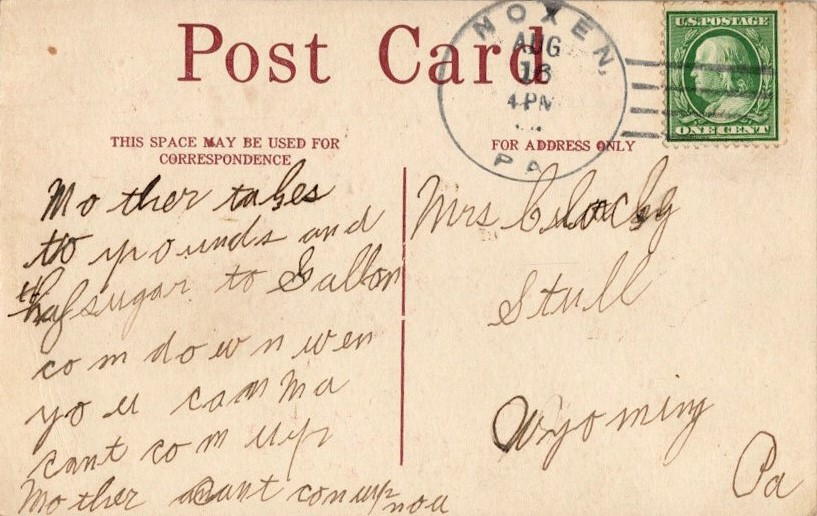 Post Card
NOXEN,
AUG
16
4 PM
PA
U.S. POSTAGE
ONE CENT
THIS SPACE MAY BE USED FOR
CORRESPONDENCE
FOR ADDRESS ONLY
Mother takes
to pounds and
haf sugar to Gallon
com down wen
you can Ma
cant com up
Mother cant com up nou
Mrs
Stull
Wyoming
Pa